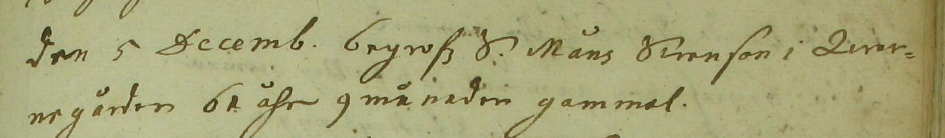 den 5 Decemb. begrofs S. Måns Svenson i Qvar-
negården 61 åhr 9 månader gammal.